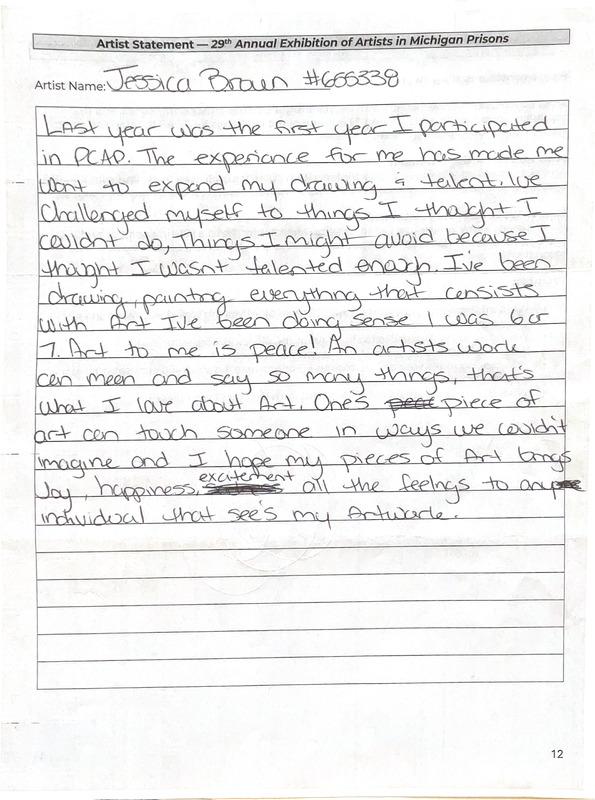 Artist Statement — 29th Annual Exhibition of Artists in Michigan Prisons
Artist Name: Jessica Braun #666338
Last year was the first year I participated
in PCAP. The experiance for me has made me
want to expand my drawing & tallent. Ive
Challenged myself to things I thought I
couldnt do, Things I might avoid because I
thought I wasnt talented enough. I've been
drawing, painting everything that consists
with Art I've been doing sense I was 6 or
7. Art to me is peace! An artists work
can mean and say so many things, that's
what I love about Art. One's piece of
art can touch someone in ways we couldn't
imagine and I hope my pieces of Art brings
Joy, happiness, excitement all the feelings to any
individual that see's my Artwork.
12